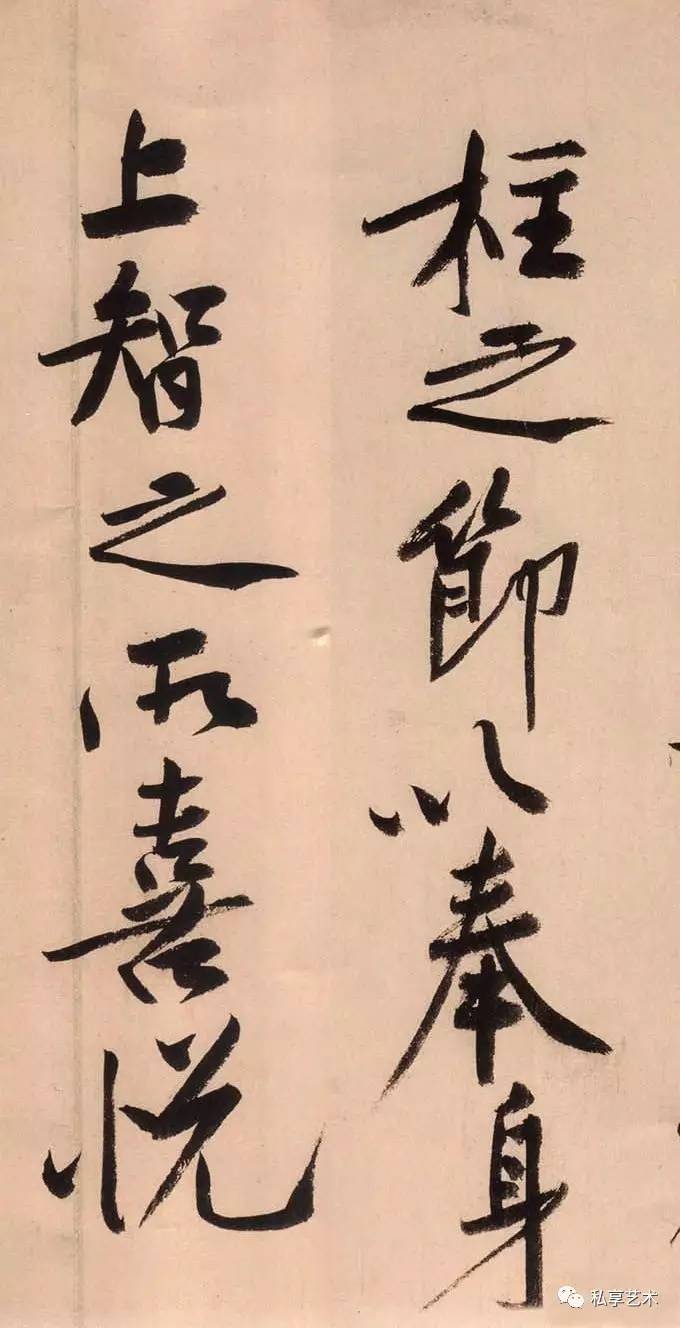 柱之節以奉身
上智之所喜悦
私享艺术